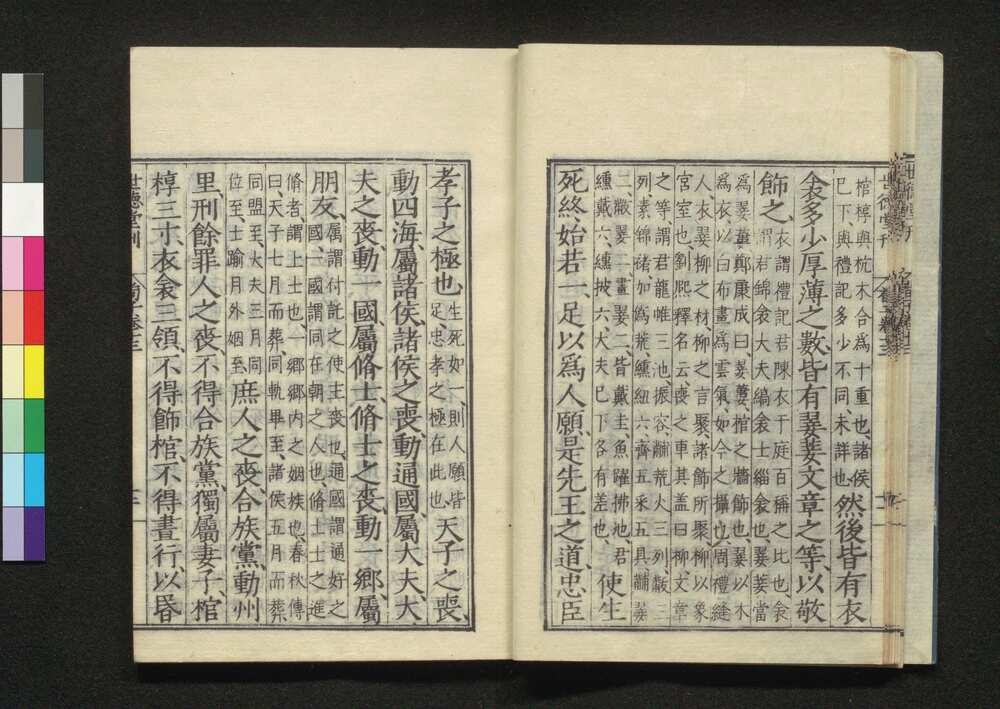 棺椁與杭木合爲十重也、諸侯
已下與禮記多少不同未詳也、
然後皆有衣
衾多少厚薄之數、皆有翣菨文章之等、以敬
飾之、
衣謂禮記君陳衣于庭百稱之比也、衾
謂君錦衾大夫縞衾士緇衾也、翣菨當
爲蔞翣鄭康成曰、蔞翣棺之牆飾也、翣以木
爲衣以白布畫爲雲氣、如今之攝也、周禮縫
人衣翣柳之材、柳之言聚、諸飾所聚、柳以象
宮室也、劉熙釋名云、喪之車其盖曰柳、文章
之等、謂君龍帷三池、振容黼荒火三列、黻三
列、素錦褚加僞荒、纁紐六齊五采五貝、黼翣
二、黻翣二、畫翣二、皆戴圭、魚躍拂池、君
纁戴六、纁披六、大夫已下各有差也、
使生
死終始若一、足以爲人願、是先王之道、忠臣
孝子之極也、
生死如一、則人願皆
足、忠孝之極在此也、
天子之喪、
動四海、屬諸侯、諸侯之喪、動通國、屬大夫、大
夫之喪、動一國、屬脩士、脩士之喪、動一郷、屬
朋友、
属謂付託之使主喪也、通國謂通好之
國、一國謂同在朝之人也、脩士士之進
脩者、謂上士也、一郷郷内之姻族也、春秋傳
曰天子七月而葬、同軌畢至、諸侯五月而葬、
同盟至、大夫三月同
位至、士踰月外姻至、
庶人之喪、合族黨、動州
里、刑餘罪人之喪、不得合族黨、獨屬妻子、棺
椁三寸、衣衾三領、不得飾棺、不得晝行、以昬
世德堂刊